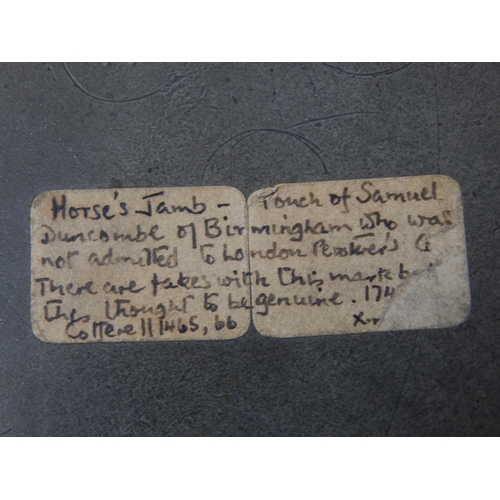 Horse's Jamb - Touch of Samuel
Duncombe of Birmingham who was
not admitted to London Pewterer's G
There are fakes with this mark but
this thought to be genuine. 174
Cotterell 1465, 66